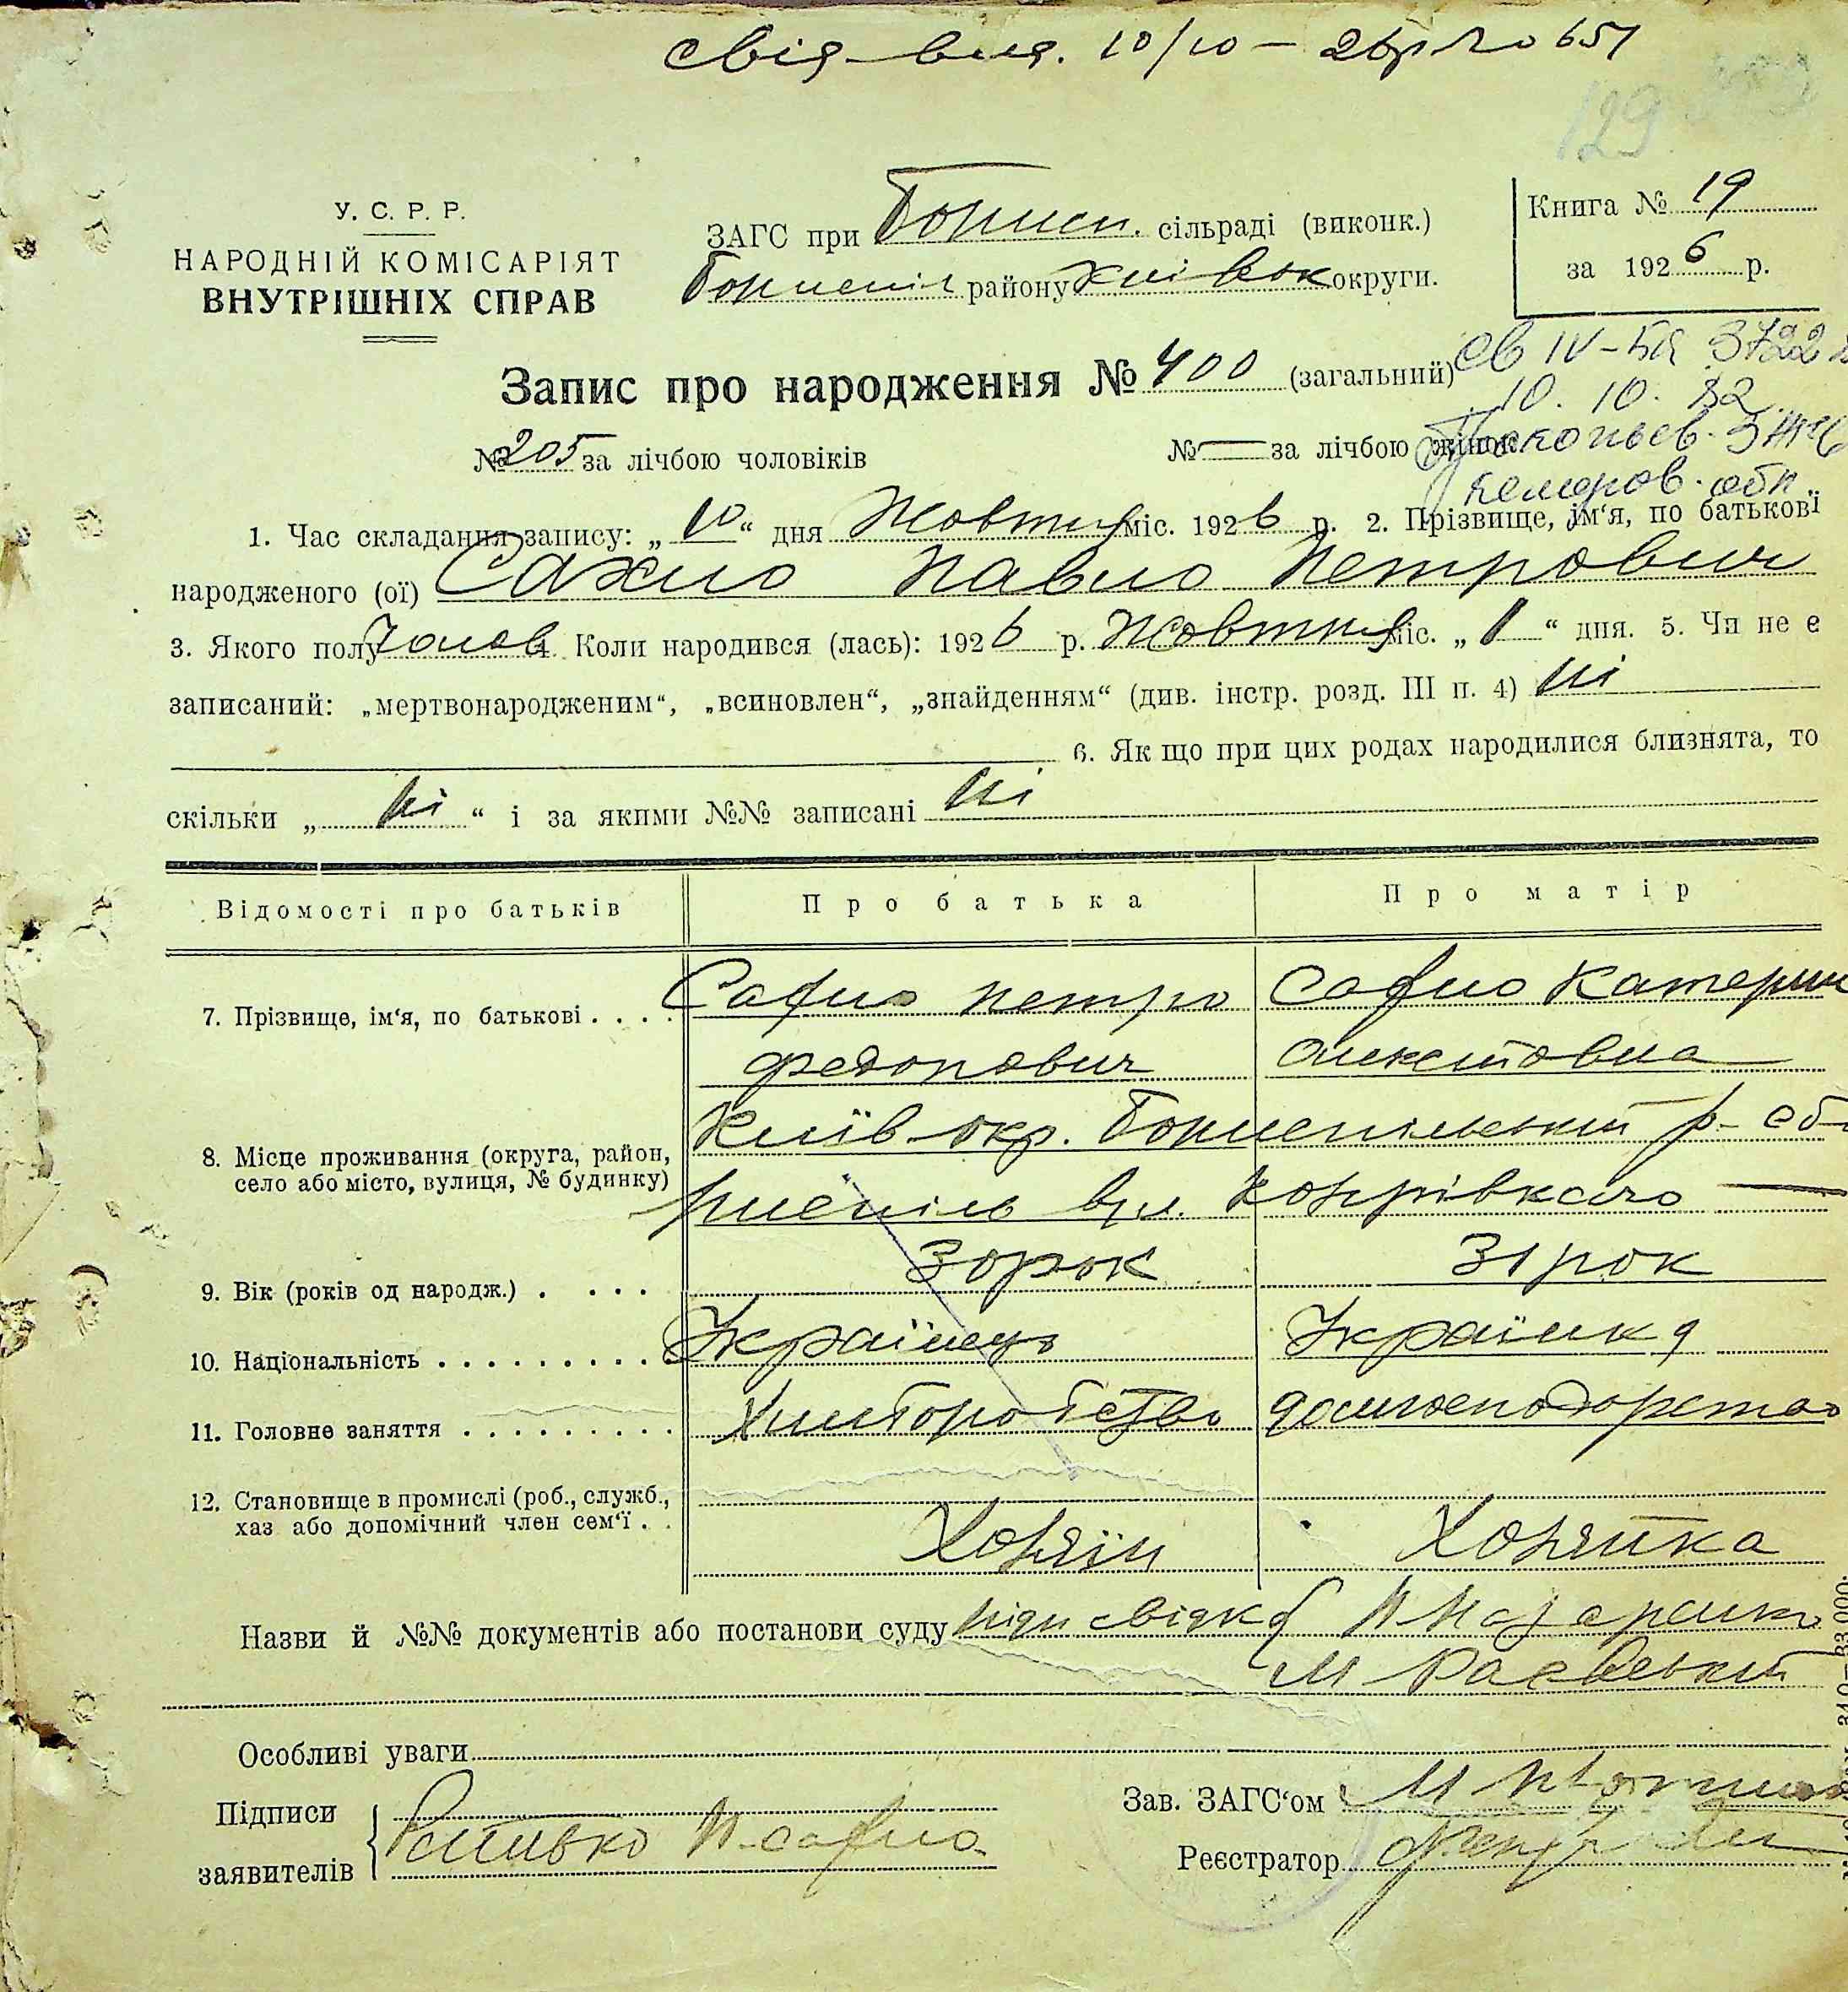 свід. вид. 10/10 – 26 р № 651
129
У. С. Р. Р.
НАРОДНІЙ КОМІСАРІЯТ
ВНУТРІШНІХ СПРАВ
ЗАГС при Борисп. сільраді (виконк.)
Бориспіл району Київ округи.
Книга № 19
за 1926 р.
Запис про народження № 400 (загальний)
св IV-БЯ 3722
10. 10. 82
Прокопьев.
Кемеров. обл.
№ 205 за лічбою чоловіків
№ — за лічбою жінок
1. Час складання запису: „10“ дня Жовтня міс. 1926 р. 2. Прізвище, ім‘я, по батькові
народженого (ої) Сахно Павло Петрович
3. Якого полу Чолов 4. Коли народився (лась): 1926 р. Жовтня міс. „1“ дня. 5. Чи не є
записаний: „мертвонародженим“, „всиновлен“, „знайденням“ (див. інстр. розд. III п. 4) ні
6. Як що при цих родах народилися близнята, то
скільки „ ні “ і за якими №№ записані ні
Відомості про батьків
Про батька
Про матір
7. Прізвище, ім‘я, по батькові . . . .
Сахно Петро
Федорович
Сахно Катерин
Олексіївна
8. Місце проживання (округа, район,
село або місто, вулиця, № будинку)
Київ окр. Бориспільський р- с Бо
риспіль вул.
9. Вік (років од народж.) . . . .
30 рок
31 рок
10. Національність . . . . . . . . . .
Українець
Українка
11. Головне заняття . . . . . . . . .
Хліборобство
домогосподорство
12. Становище в промислі (роб., служб.,
хаз або допомічний член сем‘ї . .
Хозяїн
Хозяйка
Назви й №№ документів або постанови суду підп свідків П Назаренко
М Раєвський
Особливі уваги
Підписи
заявителів
П. Сахно
Зав. ЗАГС‘ом
Реєстратор